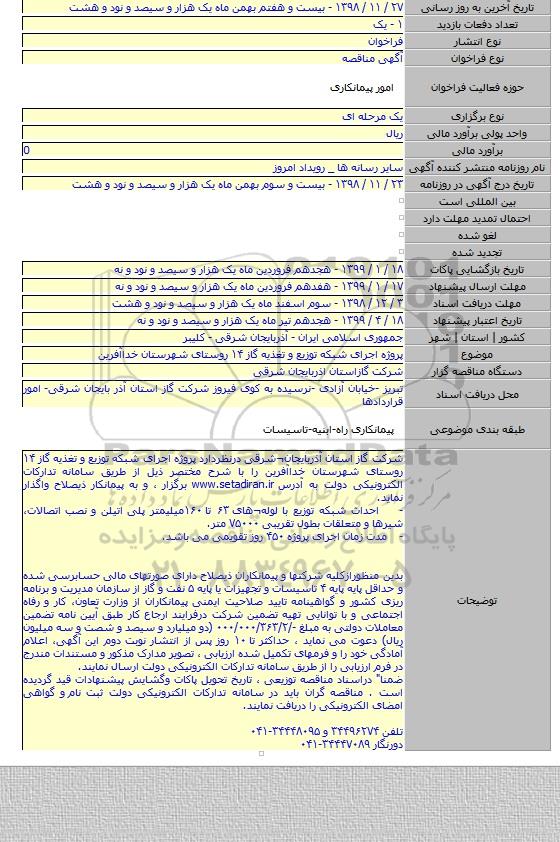 تاریخ آخرین به روز رسانی ۲۷ / ۱۱ / ۱۳۹۸ - بیست و هفتم بهمن ماه یک هزار و سیصد و نود و هشت
تعداد دفعات بازدید ۱ - یک
نوع انتشار فراخوان
نوع فراخوان آگهی مناقصه
حوزه فعالیت فراخوان امور پیمانکاری
نوع برگزاری یک مرحله ای
واحد پولی برآورد مالی ریال
برآورد مالی 0
نام روزنامه منتشر کننده آگهی سایر رسانه ها _ رویداد امروز
تاریخ درج آگهی در روزنامه ۲۳ / ۱۱ / ۱۳۹۸ - بیست و سوم بهمن ماه یک هزار و سیصد و نود و هشت
بین المللی است
احتمال تمدید مهلت دارد
لغو شده
تجدید شده
تاریخ بازگشایی پاکات ۱۸ / ۱ / ۱۳۹۹ - هجدهم فروردین ماه یک هزار و سیصد و نود و نه
مهلت ارسال پیشنهاد ۱۷ / ۱ / ۱۳۹۹ - هفدهم فروردین ماه یک هزار و سیصد و نود و نه
مهلت دریافت اسناد ۳ / ۱۲ / ۱۳۹۸ - سوم اسفند ماه یک هزار و سیصد و نود و هشت
تاریخ اعتبار پیشنهاد ۱۸ / ۴ / ۱۳۹۹ - هجدهم تیر ماه یک هزار و سیصد و نود و نه
کشور | استان | شهر جمهوری اسلامی ایران - آذربایجان شرقی - کلیبر
موضوع پروژه اجرای شبکه توزیع و تغذیه گاز ۱۴ روستای شهرستان خداآفرین
دستگاه مناقصه گزار شرکت گازاستان آذربایجان شرقی
محل دریافت اسناد تبریز -خیابان آزادی -نرسیده به کوی فیروز شرکت گاز استان آذر بایجان شرقی- امور
قراردادها
طبقه بندی موضوعی پیمانکاری راه-ابنیه-تاسیسات
توضیحات
شرکت گاز استان آذربایجان¬شرقی درنظردارد پروژه اجرای شبکه توزیع و تغذیه گاز ۱۴
روستای شهرستان خداآفرین را با شرح مختصر ذیل از طریق سامانه تدارکات
الکترونیکی دولت به آدرس www.setadiran.ir برگزار ، و به پیمانکار ذیصلاح واگذار
نماید.
- احداث شبکه توزیع با لوله¬های ۶۳ تا ۱۶۰میلیمتر پلی اتیلن و نصب اتصالات،
شیرها و متعلقات بطول تقریبی ۷۵۰۰۰ متر.
- مدت زمان اجرای پروژه ۴۵۰ روز تقویمی می باشد.
بدین منظورازکلیه شرکتها و پیمانکاران ذیصلاح دارای صورتهای مالی حسابرسی شده
و حداقل پایه پایه ۴ تاسیسات و تجهیزات یا پایه ۵ نفت و گاز از سازمان مدیریت و برنامه
ریزی کشور و گواهینامه تایید صلاحیت ایمنی پیمانکاران از وزارت تعاون، کار و رفاه
اجتماعی و با توانایی تهیه تضمین شرکت درفرایند ارجاع کار طبق آیین نامه تضمین
معاملات دولتی به مبلغ -/۰۰۰/۰۰۰/۳۶۳/۲ (دو میلیارد و سیصد و شصت و سه میلیون
ریال) دعوت می نماید ، حداکثر تا ۱۰ روز پس از انتشار نوبت دوم این آگهی، اعلام
آمادگی خود را و فرمهای تکمیل شده ارزیابی ، تصویر مدارک مذکور و مستندات مندرج
در فرم ارزیابی را از طریق سامانه تدارکات الکترونیکی دولت ارسال نمایند.
ضمنا" دراسناد مناقصه توزیعی ، تاریخ تحویل پاکات وگشایش پیشنهادات قید گردیده
است . مناقصه گران باید در سامانه تدارکات الکترونیکی دولت ثبت نام و گواهی
امضای الکترونیکی را دریافت نمایند.
تلفن ۳۴۴۹۶۲۷۴ و ۳۴۴۴۸۰۹۵-۰۴۱
دورنگار ۳۴۴۴۷۰۸۹-۰۴۱
ParsNamadData
پایگاه اطلاع رسانی مناقصه و مزایده
۰۲۱-۸۸۳۴۹۶۷۰-۵